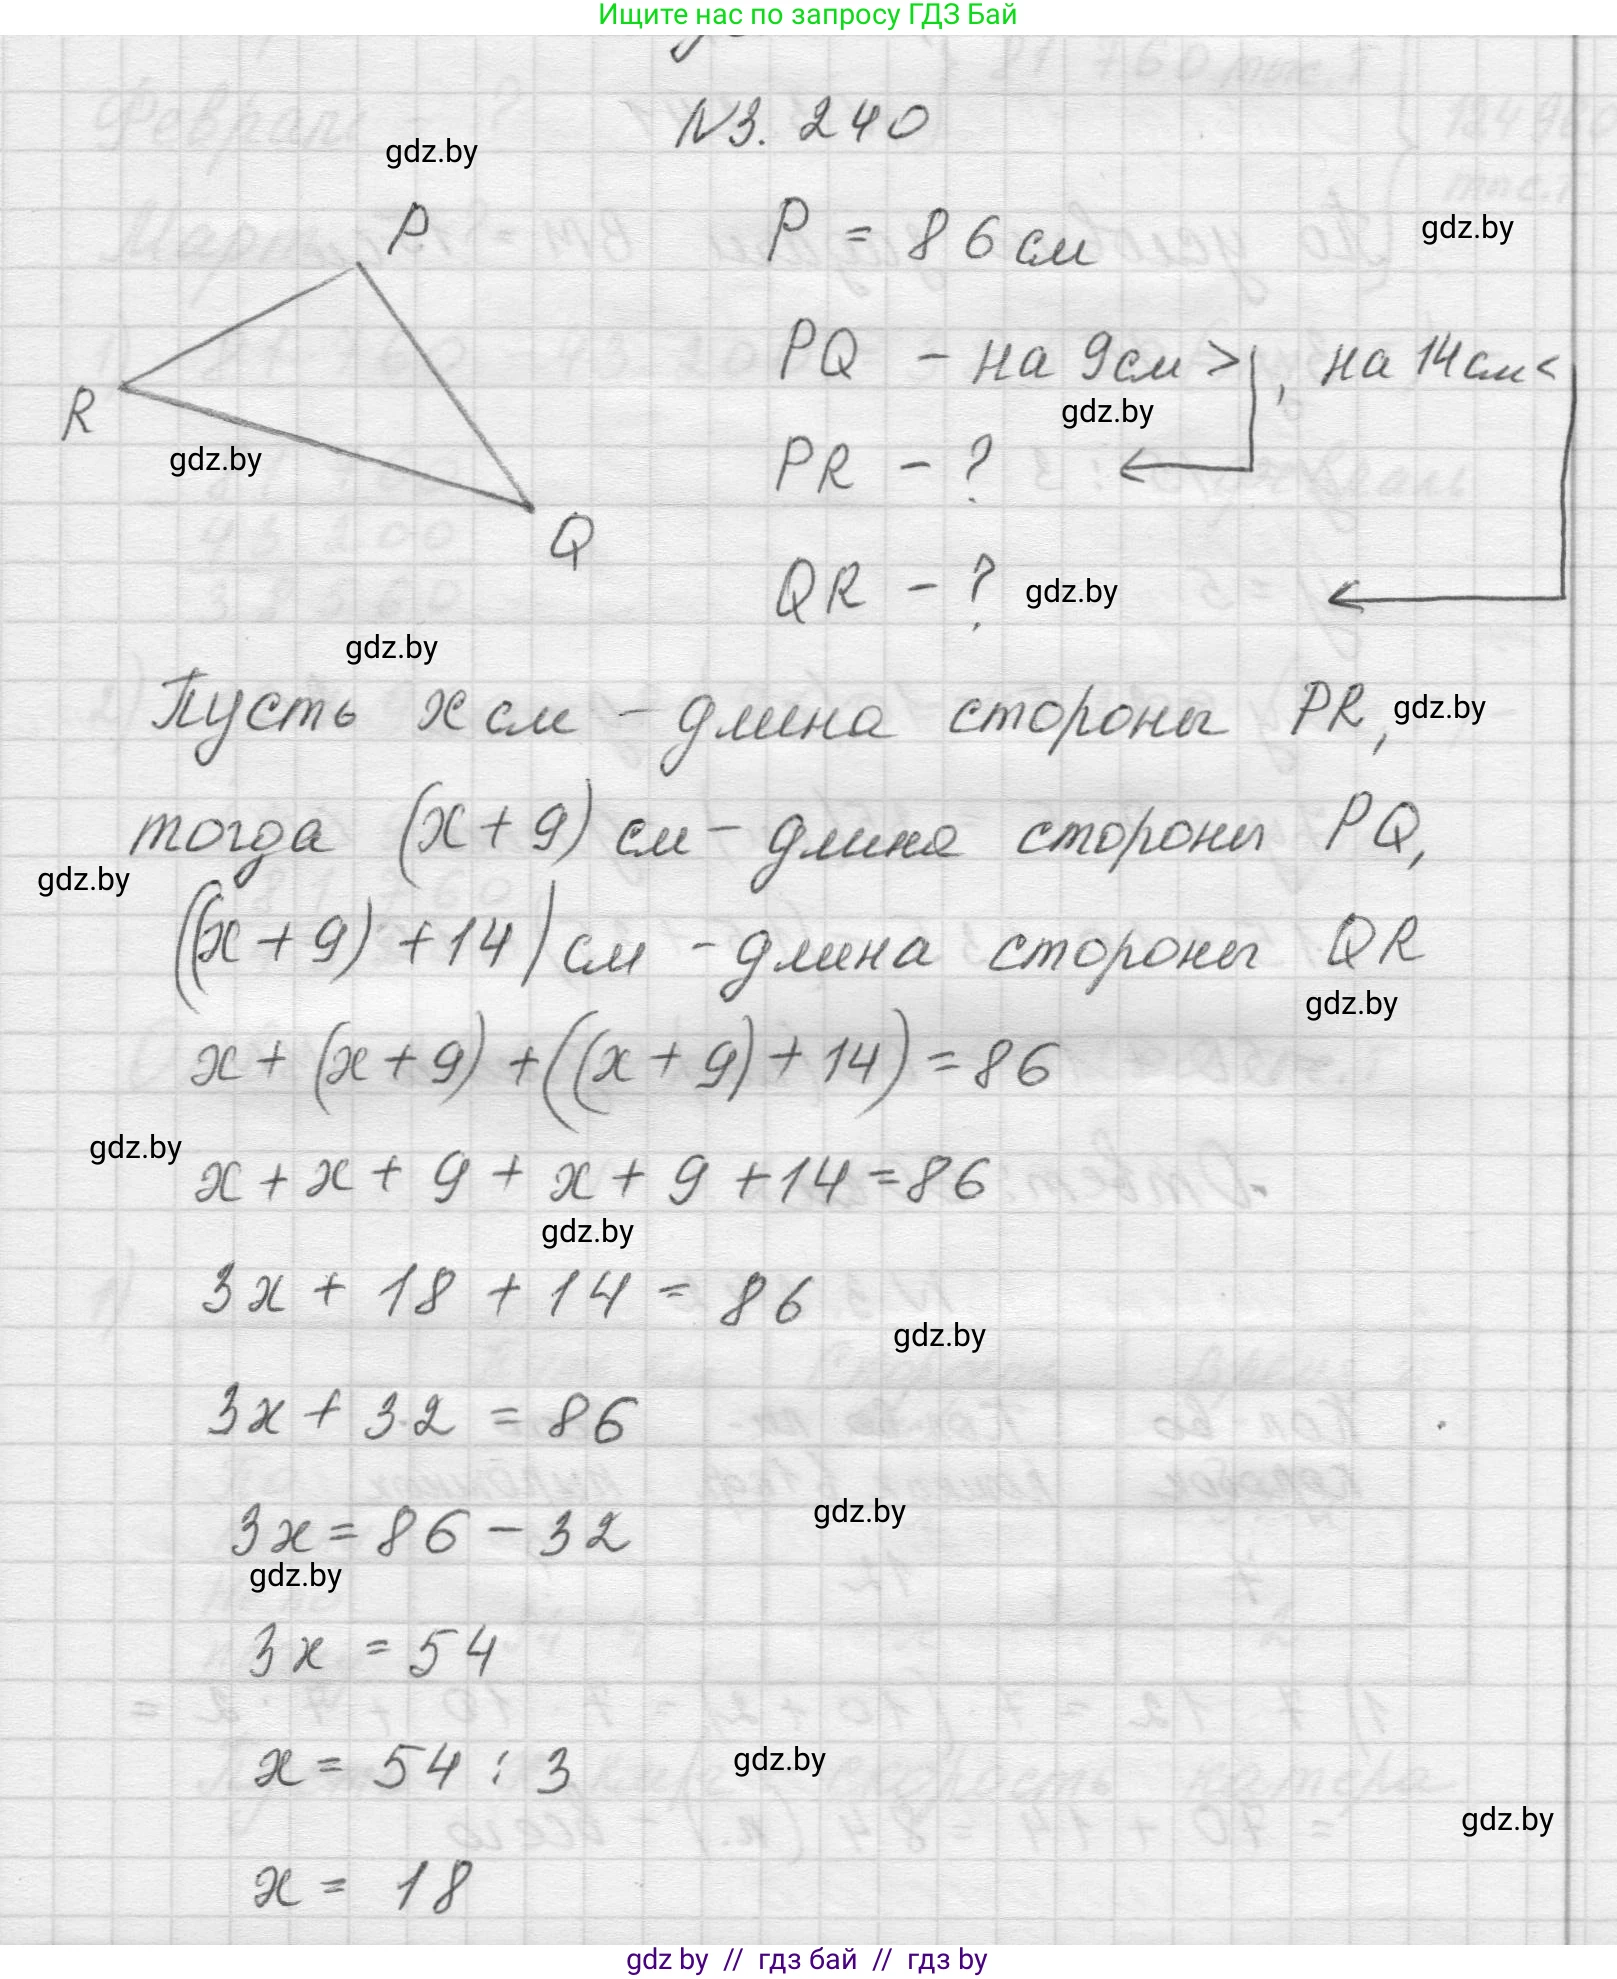 Ищите нас по запросу ГДЗ Бай
N3. 240
gdz.by
P
P = 86 см
gdz.by
PQ - на 9 см >, на 14 см <
gdz.by
R
gdz.by
PR - ?
Q
QR - ?
gdz.by
gdz.by
Пусть x см - длина стороны PR,
gdz.by
тогда (x + 9) см - длина стороны PQ,
gdz.by
((x + 9) + 14) см - длина стороны QR
gdz.by
x + (x + 9) + ((x + 9) + 14) = 86
gdz.by
x + x + 9 + x + 9 + 14 = 86
gdz.by
3x + 18 + 14 = 86
gdz.by
3x + 32 = 86
gdz.by
3x = 86 - 32
gdz.by
3x = 54
x = 54 : 3
gdz.by
gdz.by
x = 18
gdz by // гдз бай // гдз by